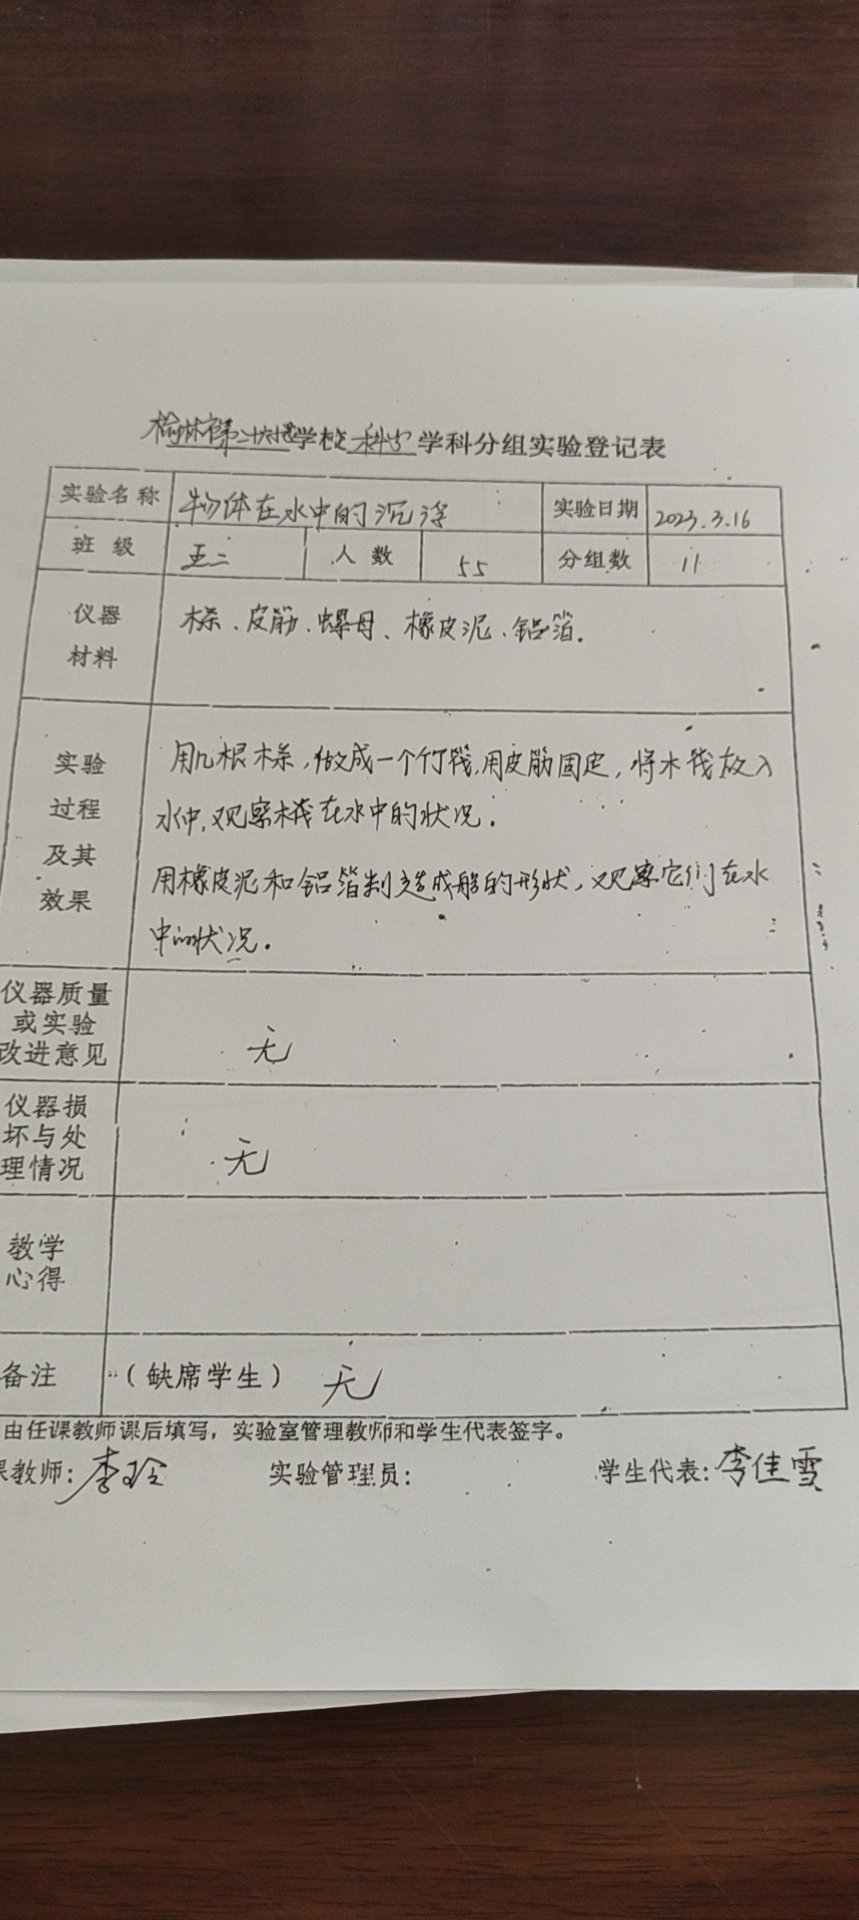 榆林市第二十六小学校科学学科分组实验登记表
实验名称 物体在水中的沉浮 实验日期 2023.3.16
班级 五二 人数 55 分组数 11
仪器材料 木条、皮筋、螺母、橡皮泥、铝箔.
实验 用几根木条,做成一个竹筏,用皮筋固定,将木筏放入
过程 水中,观察木筏在水中的状况.
及其 用橡皮泥和铝箔制造成船的形状,观察它们在水
效果 中的状况.
仪器质量
或实验
改进意见 无
仪器损
坏与处
理情况 无
教学
心得
备注 (缺席学生) 无
由任课教师课后填写,实验室管理教师和学生代表签字。
课教师:李玲 实验管理员: 学生代表:李佳雪